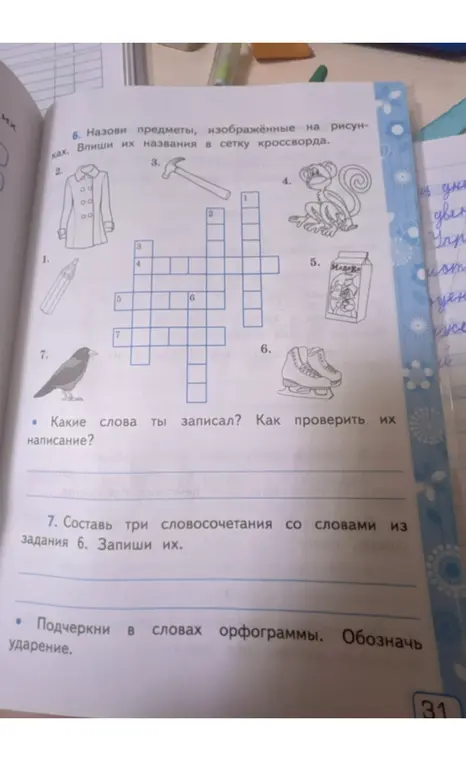 6. Назови предметы, изображённые на рисун-
ках. Впиши их названия в сетку кроссворда.
2.
3.
4.
1
2
3
4
1.
5.
МОЛОКО
5
6
7
7.
6.
• Какие слова ты записал? Как проверить их
написание?
7. Составь три словосочетания со словами из
задания 6. Запиши их.
• Подчеркни в словах орфограммы. Обозначь
ударение.
31